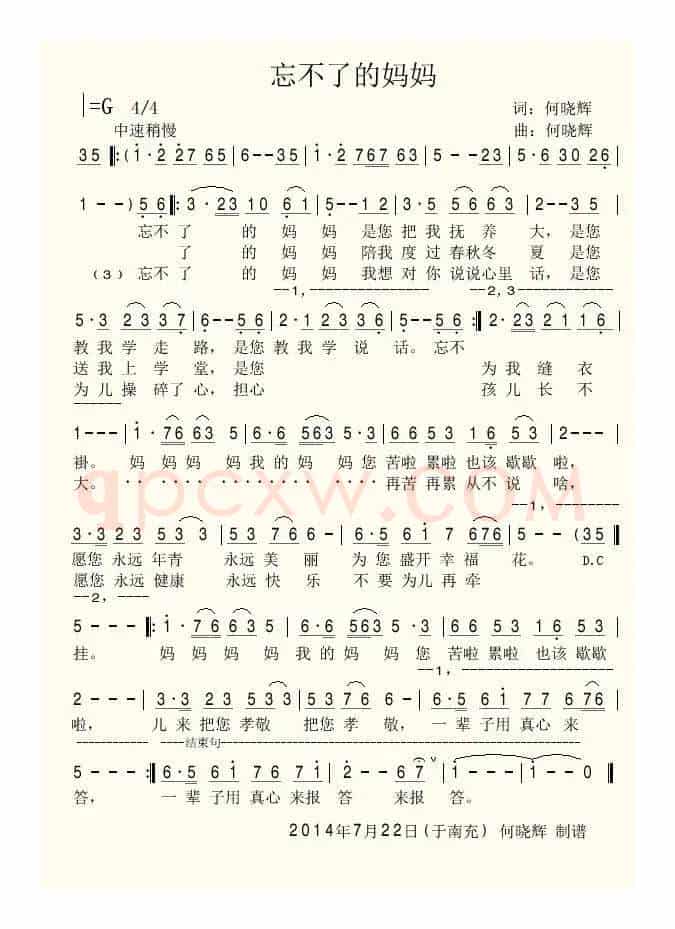 忘不了的妈妈
1=G 4/4 词：何晓辉
中速稍慢 曲：何晓辉
35 ‖:(1·2 27 65|6--35|1·2 767 63|5--23|5·6 30 26|
1--)56‖:3·23 10 61|5--12|3·5 5663 23|2--35|
忘不了 的 妈 妈 是您 把 我 抚 养 大，是您
了 的 妈 妈 陪我 度 过 春秋冬 夏 是您
（3）忘不了 的 妈 妈 我想 对 你 说说心里 话，是您
--1,---------------- --2,3-------------
5·3 23 37|6--56|2·1 23 216|5--56:‖2·23 21 16|
教我 学 走 路，是您 教 我 学 说 话。忘不
送我 上 学 堂，是您 为 我 缝 衣
为儿 操 碎了 心，担心 孩儿 长 不
------
1---|1·76 63 5|6·6 563 5·3|66 53 16 53|2---|
褂。 妈 妈妈 妈 我的 妈 妈您 苦啦 累啦 也该 歇歇 啦，
大。 再苦 再累 从不 说 啥，
--1,--------
3·3 23 53 53|53 76 6-|6·5 61 7 676|5--(35‖
愿您 永远 年青 永远 美 丽 为 您 盛开 幸 福 花。 D.C
愿您 永远 健康 永远 快 乐 不 要 为儿 再 牵
--2,----
5---‖:1·76 63 3|6·6 563 5·3|66 53 16 53|
挂。 妈 妈妈 妈 我的 妈 妈 您 苦啦 累啦 也该 歇歇
--1,--------------
2---|3·3 23 53 53|53 76 6-|6·5 61 7 676|
啦， 儿 来 把您 孝敬 把您 孝 敬，一 辈 子用 真心 来
----------- ----结束句----------------------------------------
5---:‖6·5 61 767 61|2--67|1---|1--0‖
答， 一 辈 子用 真心 来报 答 来报 答。
2014年7月22日(于南充) 何晓辉 制谱
qpcxw.com